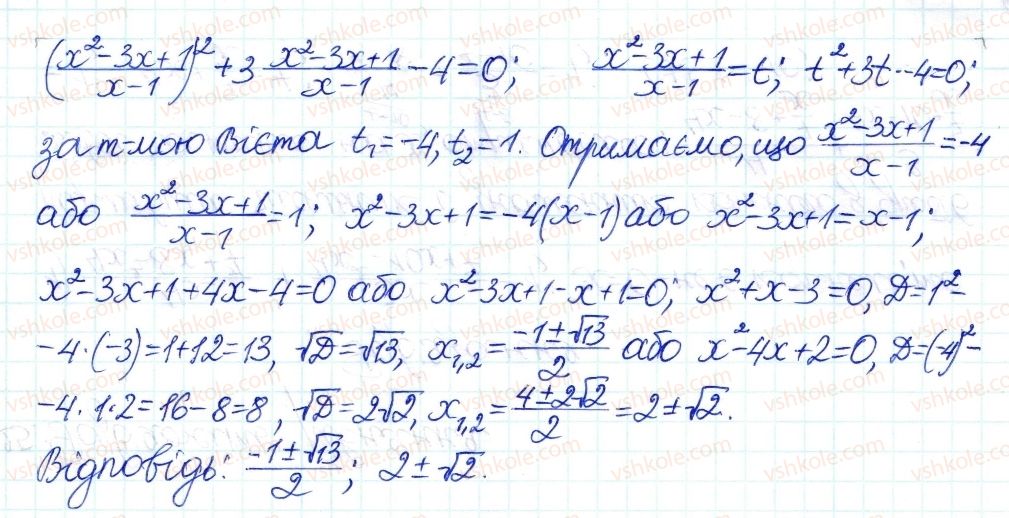 ((x²-3x+1)/(x-1))² + 3 (x²-3x+1)/(x-1) - 4 = 0; (x²-3x+1)/(x-1) = t; t²+3t-4=0;
за т-мою Вієта t₁=-4, t₂=1. Отримаємо, що (x²-3x+1)/(x-1) = -4
або (x²-3x+1)/(x-1) = 1; x²-3x+1=-4(x-1) або x²-3x+1=x-1;
x²-3x+1+4x-4=0 або x²-3x+1-x+1=0; x²+x-3=0, D=1²-
-4·(-3)=1+12=13, √D=√13, x₁,₂ = (-1±√13)/2 або x²-4x+2=0, D=(-4)²-
-4·1·2=16-8=8, √D=2√2, x₁,₂ = (4±2√2)/2 = 2±√2.
Відповідь: (-1±√13)/2; 2±√2.